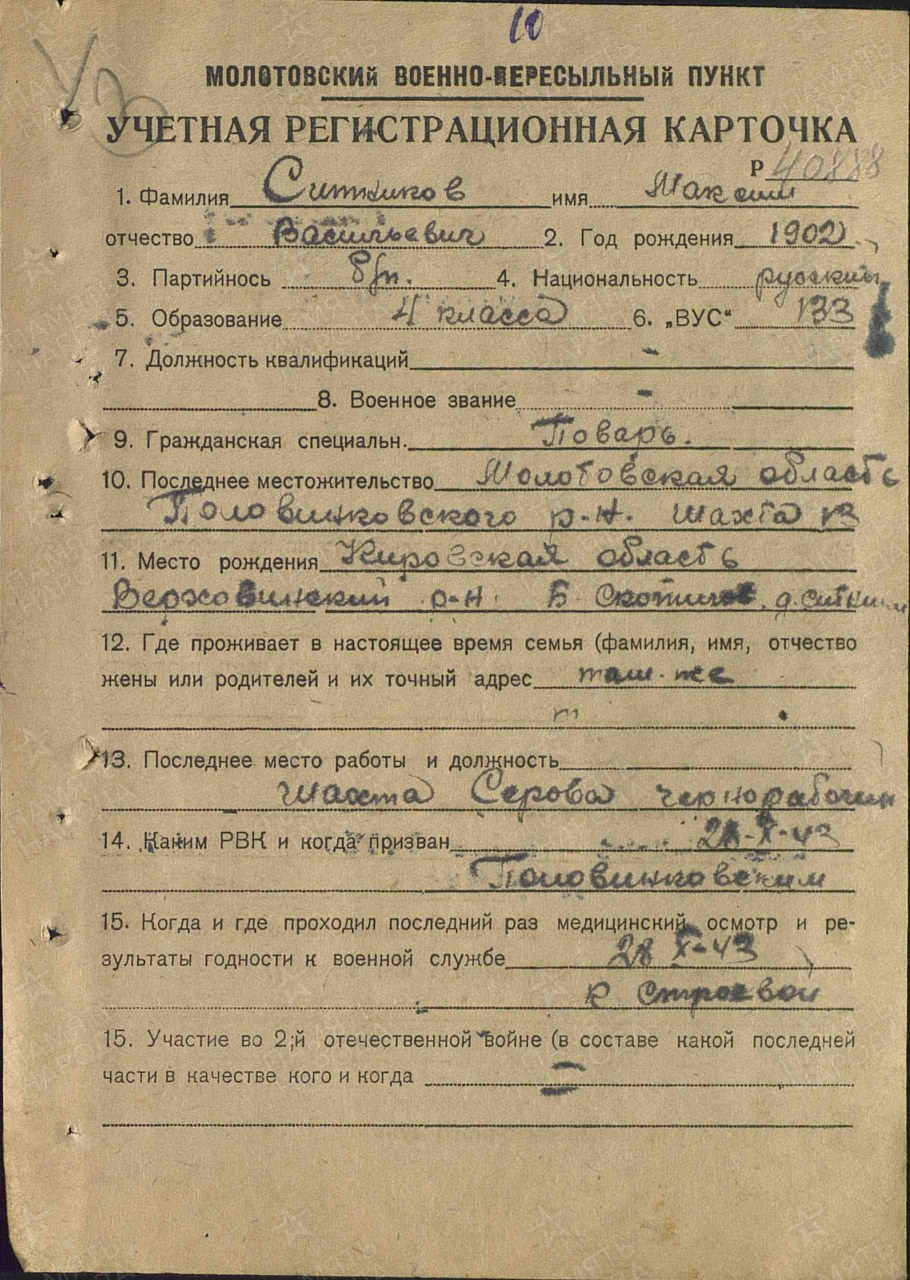 10
УЗ
МОЛОТОВСКИЙ ВОЕННО-ПЕРЕСЫЛЬНЫЙ ПУНКТ
УЧЕТНАЯ РЕГИСТРАЦИОННАЯ КАРТОЧКА
Р 40888
1. Фамилия Ситников имя Максим
отчество Васильевич 2. Год рождения 1902
3. Партийнось б/п. 4. Национальность русский
5. Образование 4 класса 6. „ВУС“ 133
7. Должность квалификаций -
8. Военное звание -
9. Гражданская специальн. Поварь.
10. Последнее местожительство Молотовская область
Половинковского р-н. шахта
11. Место рождения Кировская область
Верховинский р-н. Б. д. Ситники
12. Где проживает в настоящее время семья (фамилия, имя, отчество
жены или родителей и их точный адрес там-же
13. Последнее место работы и должность
шахта Серова чернорабочий
14. Каким РВК и когда призван 28-X-43
Половинковским
15. Когда и где проходил последний раз медицинский осмотр и ре-
зультаты годности к военной службе 28 X-43
к строевой
15. Участие во 2;й отечественной войне (в составе какой последней
части в качестве кого и когда =